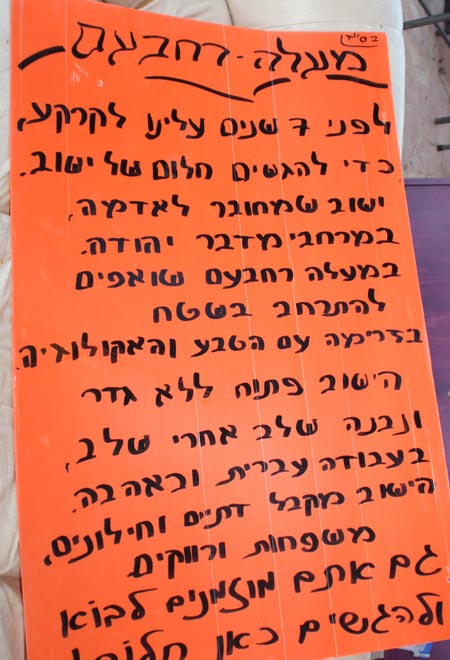 בס"ד
מעלה - רחבעם
לפני 7 שנים עלינו לקרקע,
כדי להגשים חלום של ישוב.
ישוב שמחובר לאדמה,
במרחבי מדבר יהודה.
במעלה רחבעם שואפים
להתרחב בשטח
בזרימה עם הטבע והאקולוגיה.
הישוב פתוח ללא גדר
ונבנה שלב אחרי שלב,
בעבודה עברית ובאהבה.
הישוב מקבל דתיים וחילונים,
משפחות ורווקים.
גם אתם מוזמנים לבוא
ולהגשים כאן חלום!